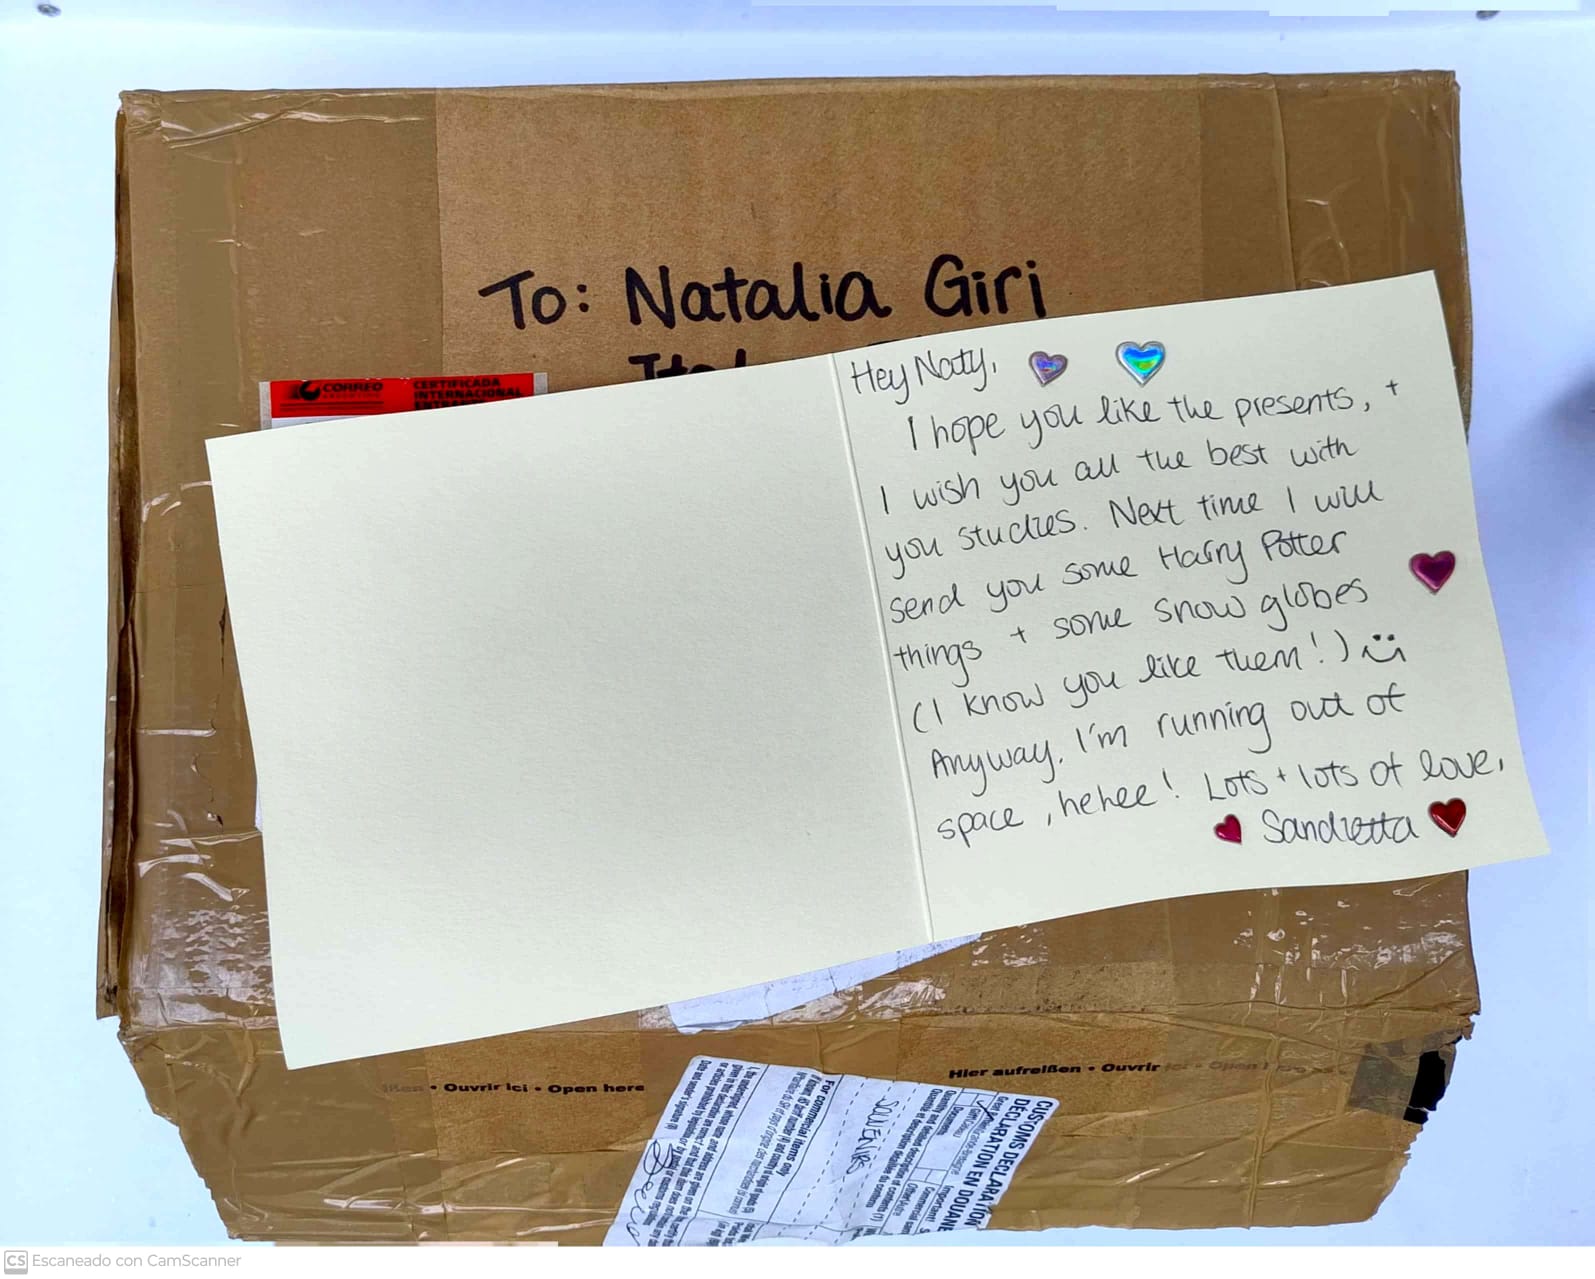 To: Natalia Giri
CORREO
ARGENTINO
CERTIFICADA
INTERNACIONAL
Hey Naty,
I hope you like the presents, +
I wish you all the best with
you studies. Next time I will
send you some Harry Potter
things + some snow globes
(I know you like them!) :)
Anyway, I'm running out of
space, hehee! Lots + lots of love,
Sandietta
• Ouvrir ici • Open here
Hier aufreißen • Ouvrir ici • Open
CUSTOMS DECLARATION
DECLARATION EN DOUANE
Important!
SOUVENIRS
For commercial items only
CS Escaneado con CamScanner